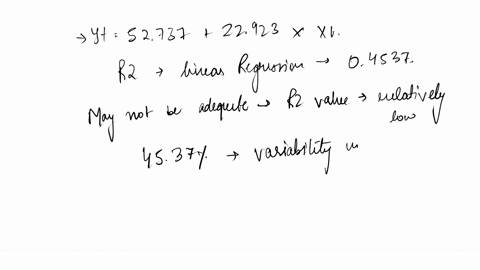 → yt = 52.737 + 22.923 × xt.
R2 → linear Regression → 0.4537.
May not be adequte → R2 value → relatively low
45.37% → variability